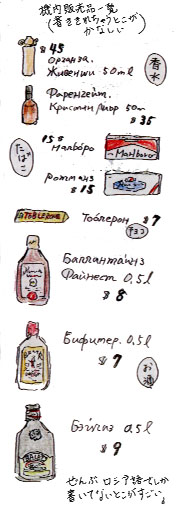 機内販売品一覧
(書ききれちゃうとこが
かなしい)
$45
Органза.
Живенши 50ml
香水
Фаренгейт.
Кристин Диор 50m
$35
たばこ
15$
Малборо
Marlboro
Ротманз
$15
TOBLERONE
Тоблерон $7
チョコ
Баллантайнз
Файнест 0,5l
$8
Бифитер. 0,5l
$7
お酒
Бэйлиз 0,5l
$9
ぜんぶロシア語でしか
書いてないとこがすごい。